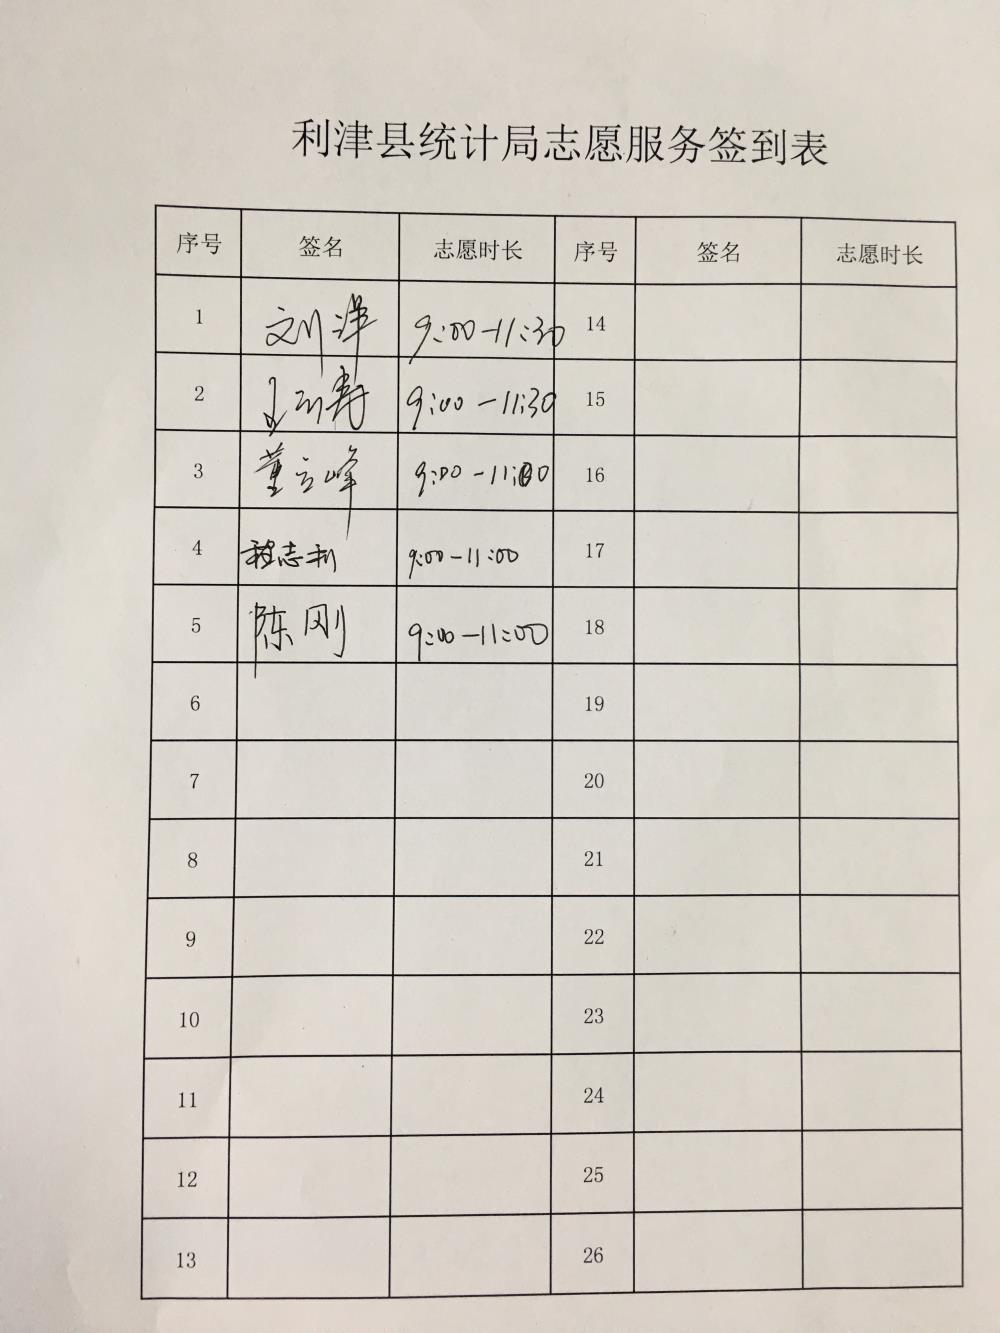 利津县统计局志愿服务签到表
序号 签名 志愿时长 序号 签名 志愿时长
1 刘洋 9:00-11:30 14
2 9:00-11:30 15
3 董立峰 9:00-11:00 16
4 程志利 9:00-11:00 17
5 陈刚 9:00-11:00 18
6 19
7 20
8 21
9 22
10 23
11 24
12 25
13 26